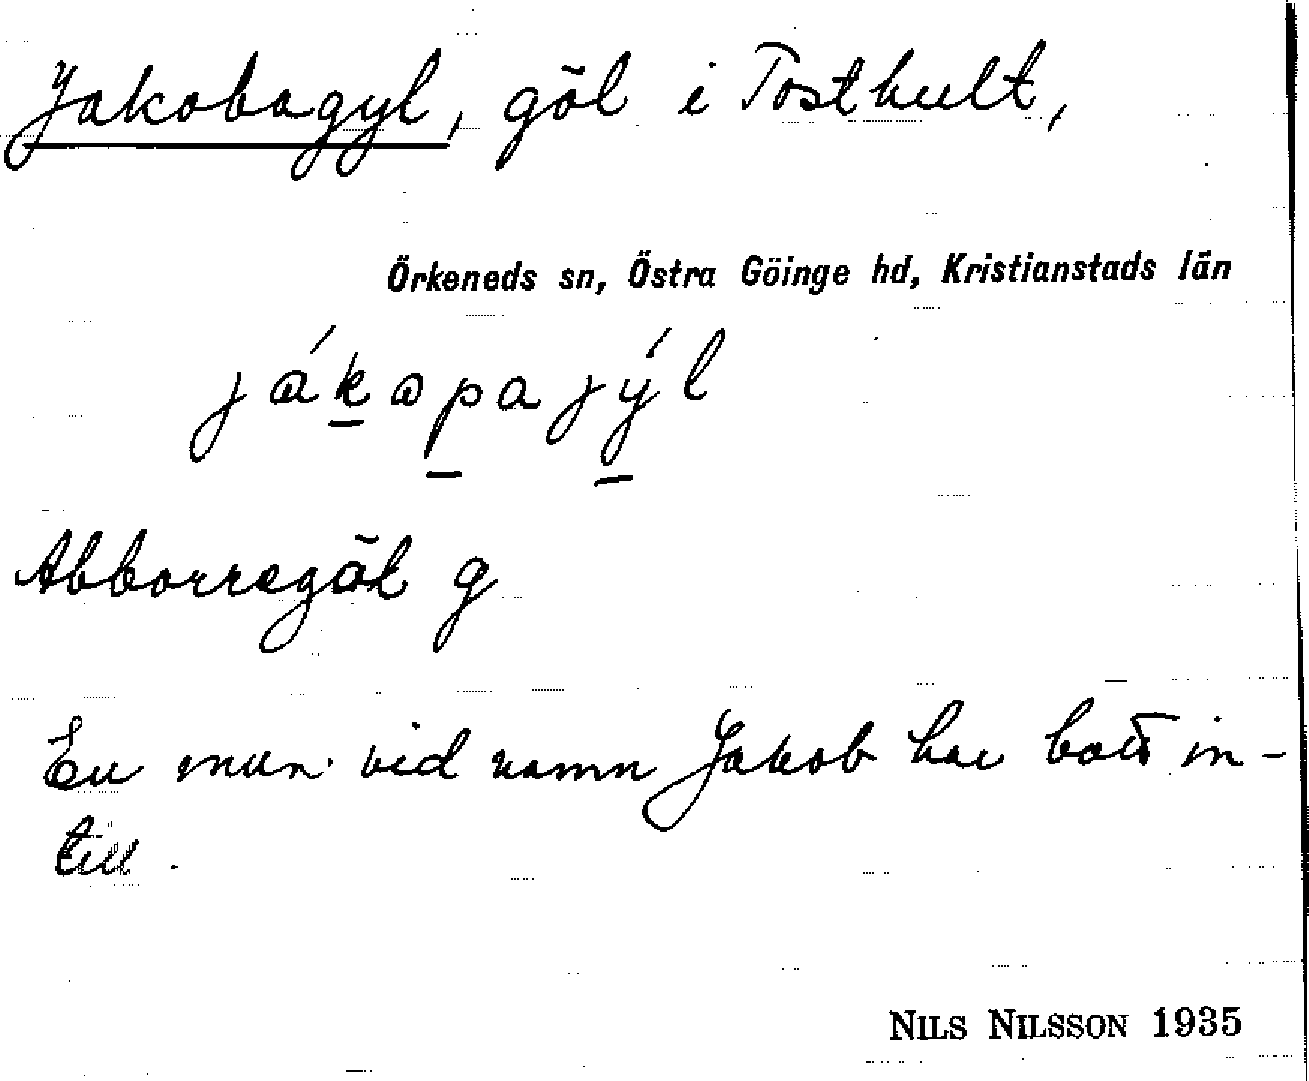 Jakobagyl, göl i Tosthult,
Örkeneds sn, Östra Göinge hd, Kristianstads län
jákapajýl
Abborregöl g
En man vid namn Jakob har bott in-
till.
NILS NILSSON 1935